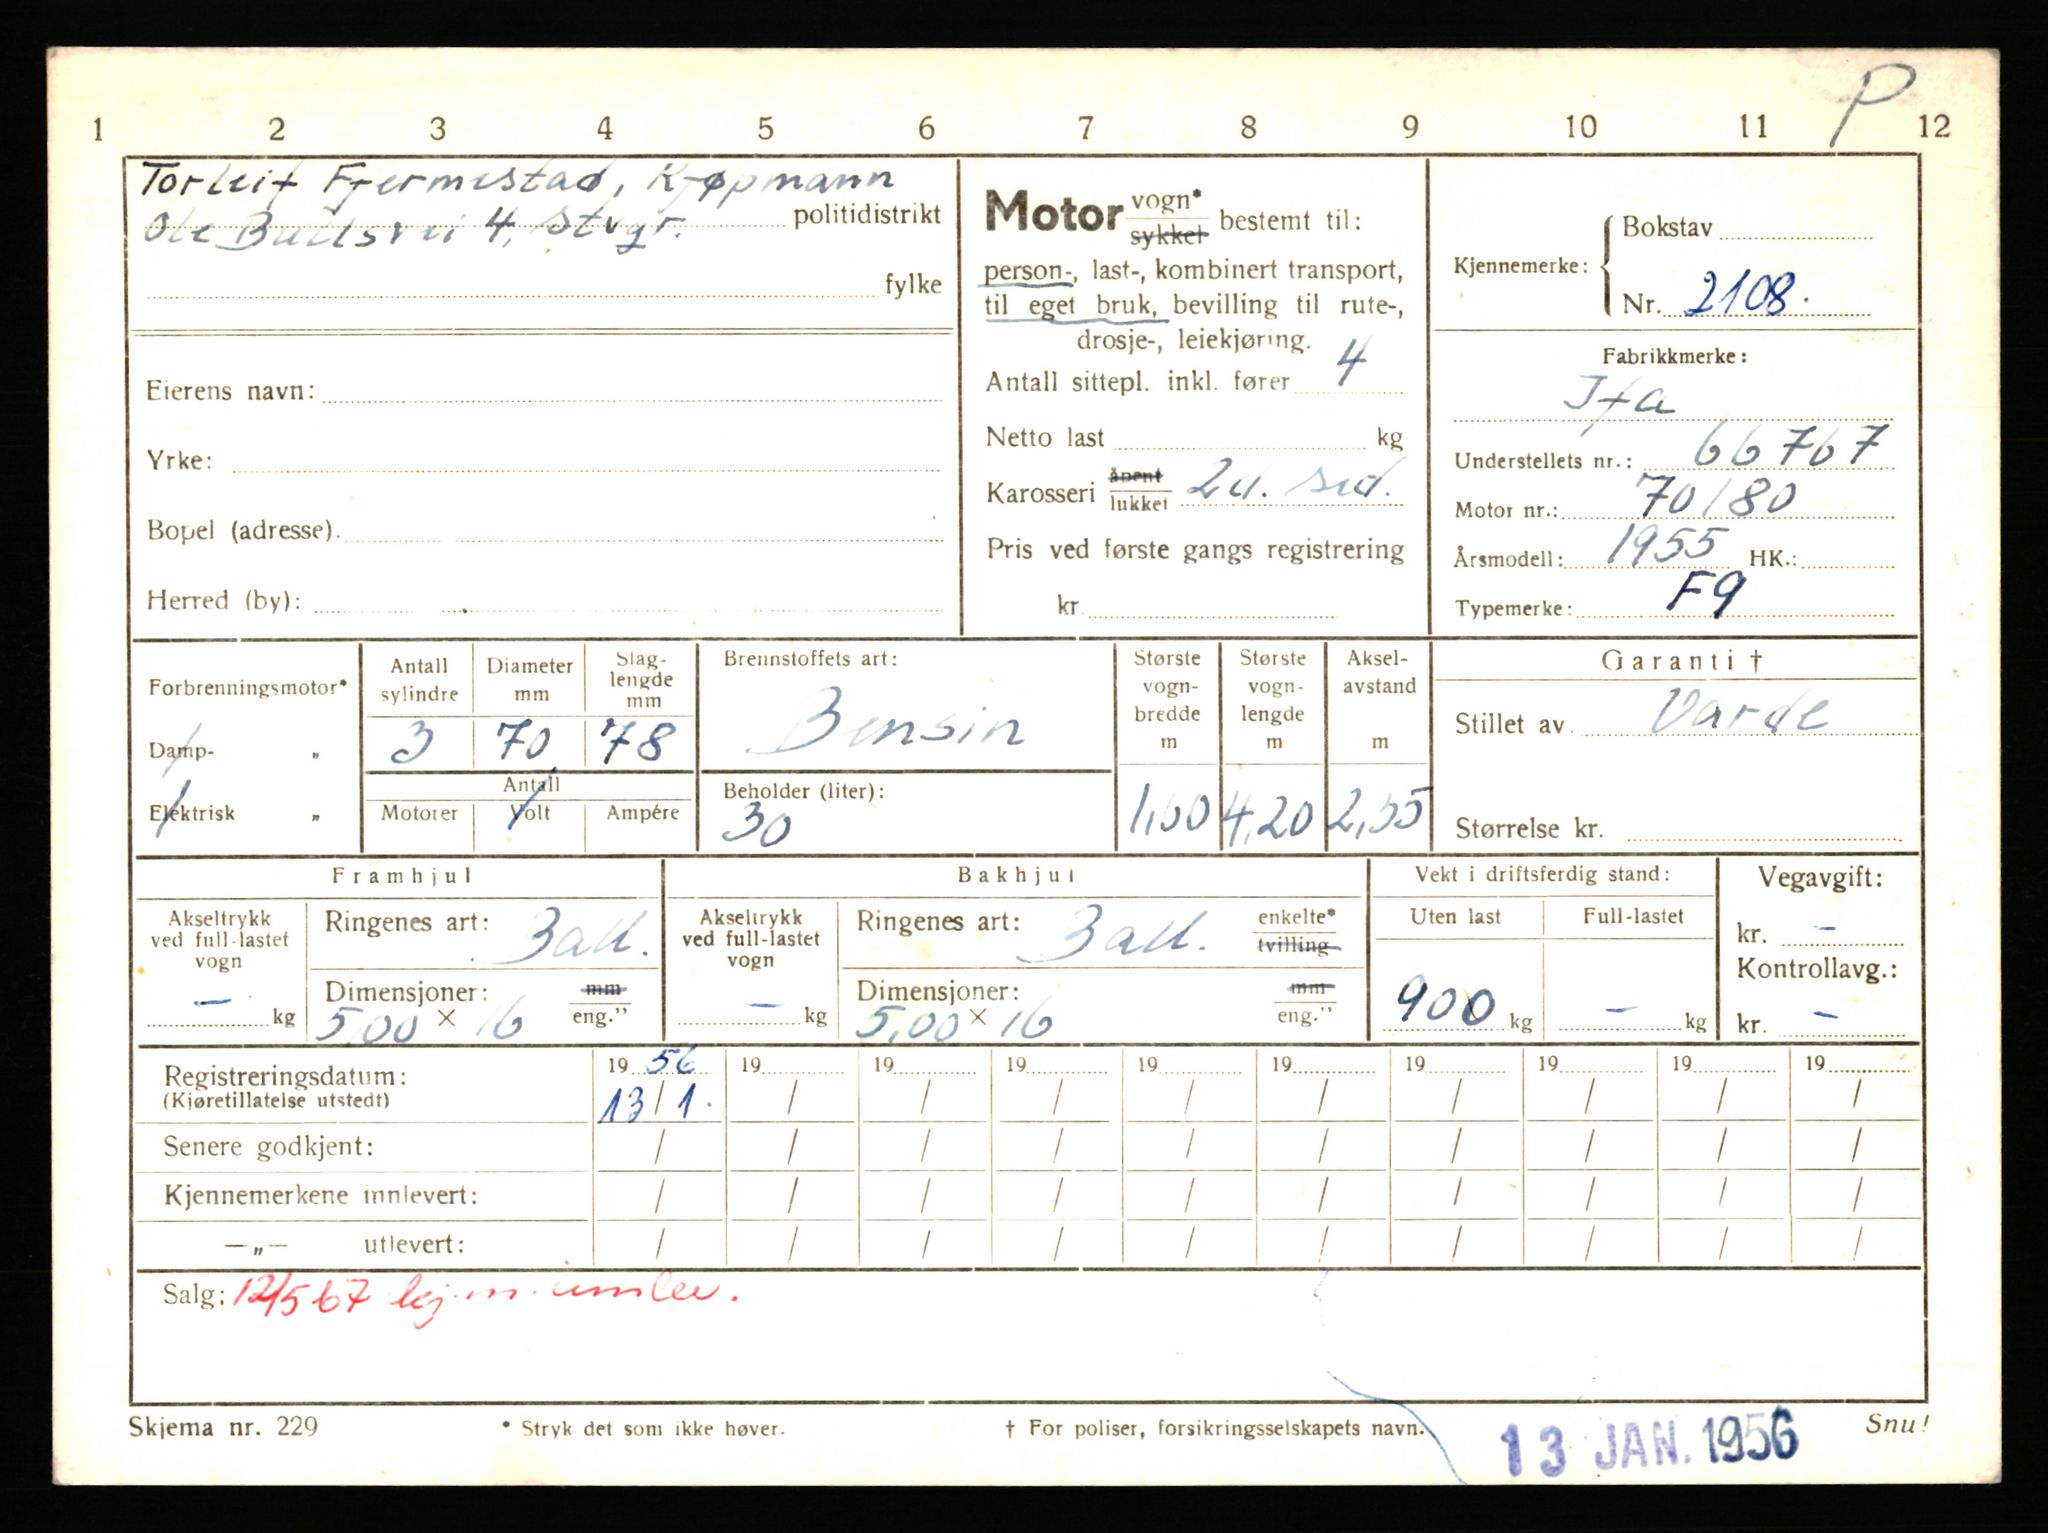 P
1 2 3 4 5 6 7 8 9 10 11 12
Torleif Fjermestad, Kjøpmann
Ole Bulls vei 4, Stvgr. politidistrikt
fylke
Eierens navn:
Yrke:
Bopel (adresse)
Herred (by):
Motor vogn* sykkel bestemt til:
person-, last-, kombinert transport,
til eget bruk, bevilling til rute-,
drosje-, leiekjøring.
Antall sittepl. inkl. fører 4
Netto last kg
Karosseri åpent lukket 2d. sed.
Pris ved første gangs registrering
kr.
Kjennemerke: Bokstav
Nr. 2108.
Fabrikkmerke:
Ifa
Understellets nr.: 66767
Motor nr.: 70180
Årsmodell: 1955 HK.:
Typemerke: F9
Forbrenningsmotor*
Damp- „
Elektrisk „
Antall sylindre 3
Diameter mm 70
Slaglengde mm 78
Antall
Motorer Volt Ampére
Brennstoffets art:
Bensin
Beholder (liter):
30
Største vognbredde m 1,60
Største vognlengde m 4,20
Akselavstand m 2,35
Garanti †
Stillet av Varde
Størrelse kr.
Framhjul
Akseltrykk ved full-lastet vogn – kg
Ringenes art: Ball.
Dimensjoner: mm eng."
5,00 × 16
Bakhjul
Akseltrykk ved full-lastet vogn – kg
Ringenes art: Ball. enkelte* tvilling
Dimensjoner: mm eng."
5,00 × 16
Vekt i driftsferdig stand:
Uten last Full-lastet
900 kg – kg
Vegavgift:
kr. –
Kontrollavg.:
kr. –
Registreringsdatum: 19 56 19 19 19 19 19 19 19 19 19
(Kjøretillatelse utstedt) 13/1. / / / / / / / / /
Senere godkjent: / / / / / / / / / /
Kjennemerkene innlevert: / / / / / / / / / /
—„— utlevert: / / / / / / / / / /
Salg: 12/5 67 kj.m. innlev.
Skjema nr. 229 * Stryk det som ikke høver. † For poliser, forsikringsselskapets navn. Snu!
13 JAN. 1956